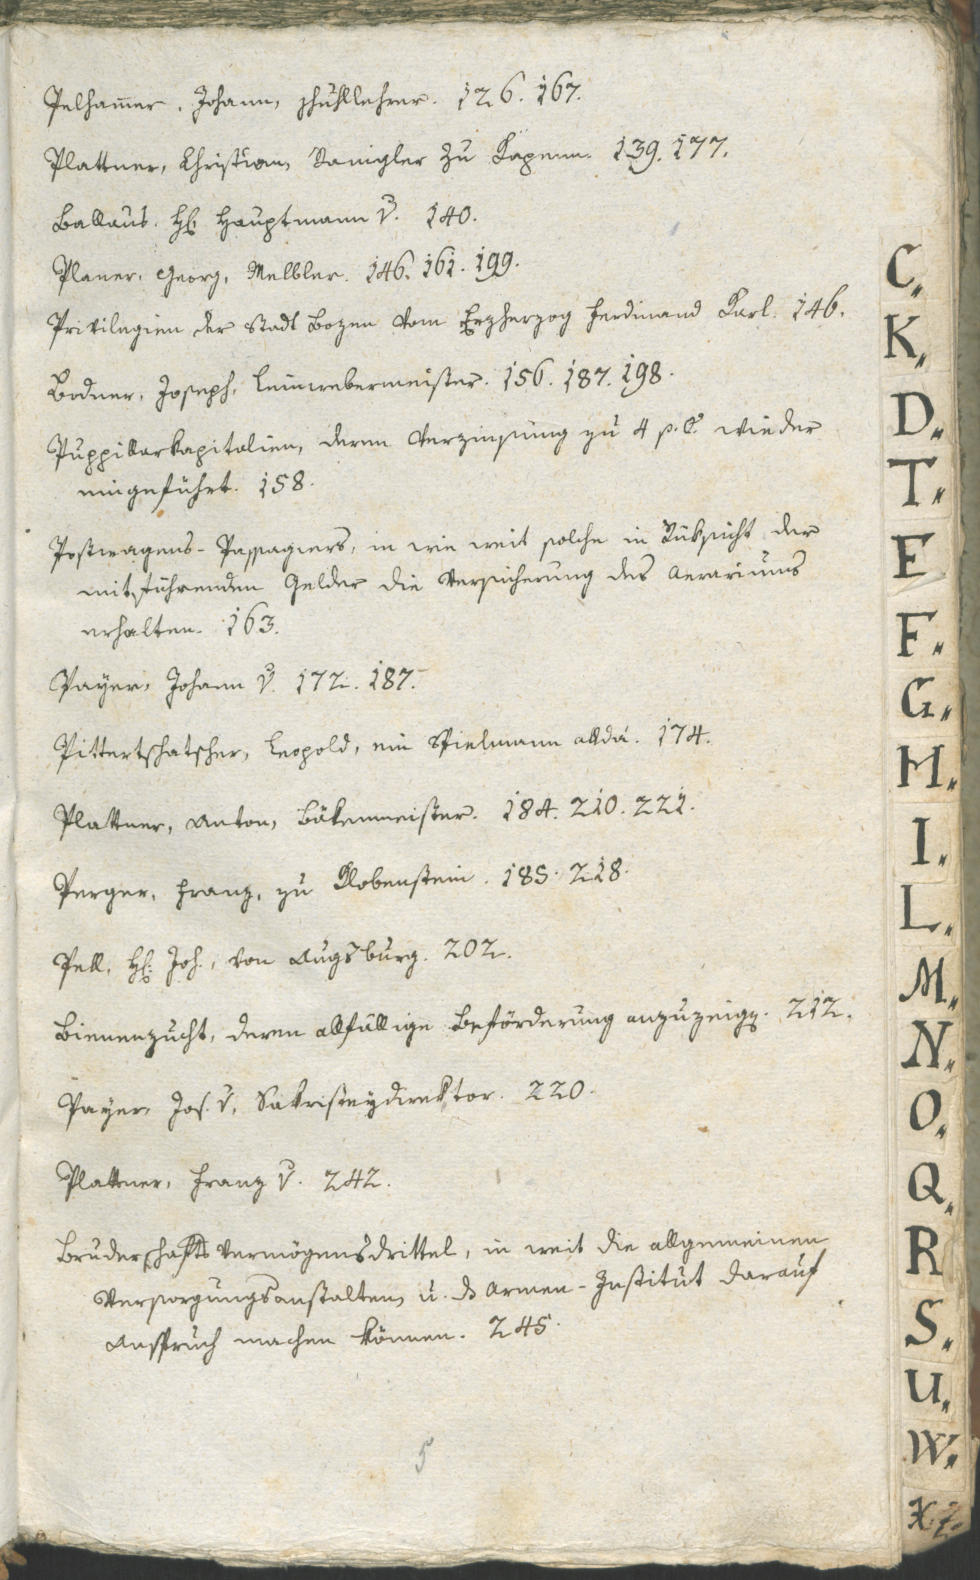 Pelham̅er, Johann, Schullehrer. 126. 167.
Plattner, Christian, Sanigler zu Kapenn. 139. 177.
Ballaus. H. Hauptmann v. 140.
Planer, Georg, Melbler. 146. 161. 199.
Privilegien der Stadt Bozen vom Erzherzog Ferdinand Karl. 146.
Bodner, Joseph, Leinwebermeister. 156. 187. 198.
Puppillarkapitalien, deren Verzinsung zu 4 p. C. wieder
eingeführt. 158.
Postwagens-Passagiers, in wie weit solche in Rüksicht der
mitführenden Gelder die Versicherung des Aerariums
erhalten. 163.
Payer, Johann v. 172. 187.
Pittertschatscher, Leopold, ein Spielmann allda. 174.
Plattner, Anton, Bäkenmeister. 184. 210. 221.
Perger, Franz, zu Klobenstein. 185. 218.
Pell, H. Joh., von Augsburg. 202.
Bienenzucht, deren allfällige Beförderung anzuzeigen. 212.
Payer, Jos. v, Sakristeydirektor. 220.
Plattner, Franz v. 242.
Bruderschafts Vermögensdrittel, in weit die allgemeinen
Versorgungsanstalten, u. d Armen-Institut darauf
Anspruch machen können. 245.
5
C.
K.
D.
T.
E
F.
G.
H.
I.
L.
M.
N.
O.
Q.
R
S.
U.
W.
X. Z.